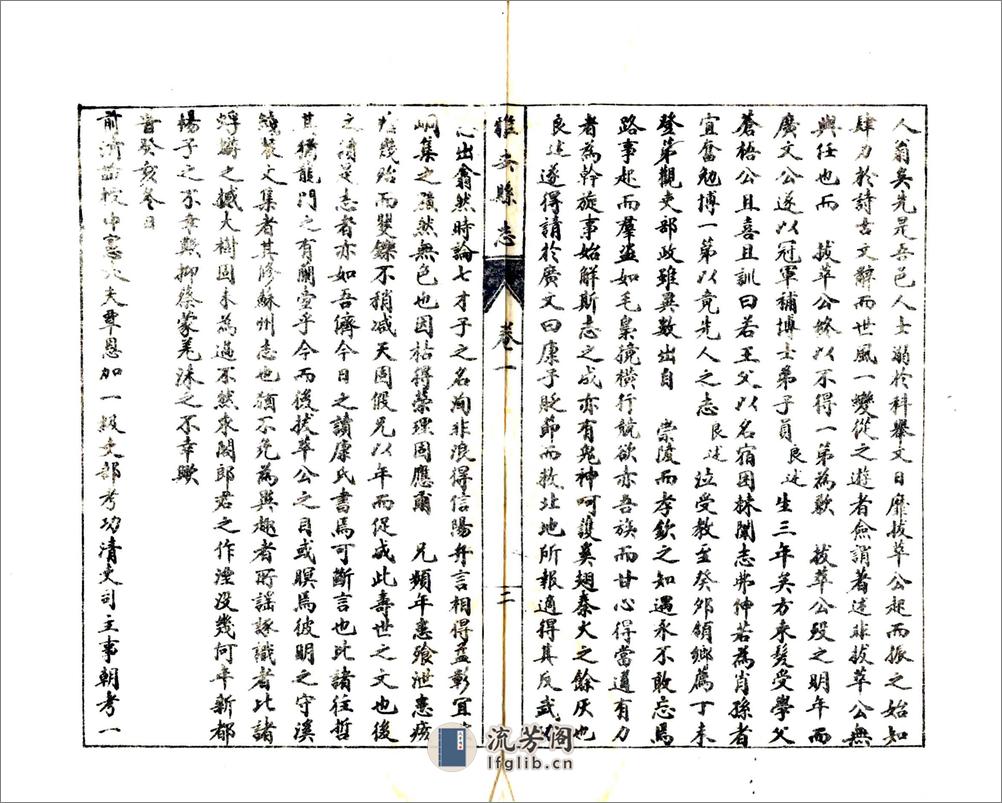 人翁矣先是吾邑人士溺於科舉文日靡拔萃公起而振之始知
肆力於詩古文辭而世風一變從之遊者僉謂著述非拔萃公無
與任也而 拔萃公終以不得一第為歉 拔萃公歿之明年而
廣文公遂以冠軍補博士弟子員良述生三年矣方束髮受學父
蒼梧公且喜且訓曰若王父以名宿困棘闈志弗伸若為肖孫者
宜奮勉搏一第以竟先人之志良述泣受教至癸卯領鄉薦丁未
登第觀吏部政雖異數出自 崇陵而孝欽之知遇永不敢忘焉
路事起而羣盜如毛梟獍橫行競欲赤吾族而甘心得當道有力
者為幹旋事始解斯志之成亦有鬼神呵護奚翅秦火之餘灰也
良述遂得請於廣文曰康子貶節而救北地所報適得其反武
雅安縣志 卷一 三
出翕然時論七才子之名洵非浪得信陽弁言相得益彰宜
峒集之隤然無色也因枯得榮理固應爾 兄頻年患飱泄患痎
幾殆而矍鑠不稍减天固假兄以年而促成此壽世之文也後
之讀是志者亦如吾儕今日之讀康氏書焉可斷言也比諸往哲
其猶龍門之有蘭臺乎今而後拔萃公之目或瞑焉彼明之守溪
文集者其修蘇州志也猶不免為異趣者所謡諑識者比諸
蜉之撼大樹固未為過不然宋閣郎君之作湮没幾何年新都
楊子之不幸歟抑蔡蒙羌沫之不幸歟
昔癸亥冬日
前清誥授中憲大夫覃恩加一級吏部考功清吏司主事朝考一
流芳阁
lfglib.cn